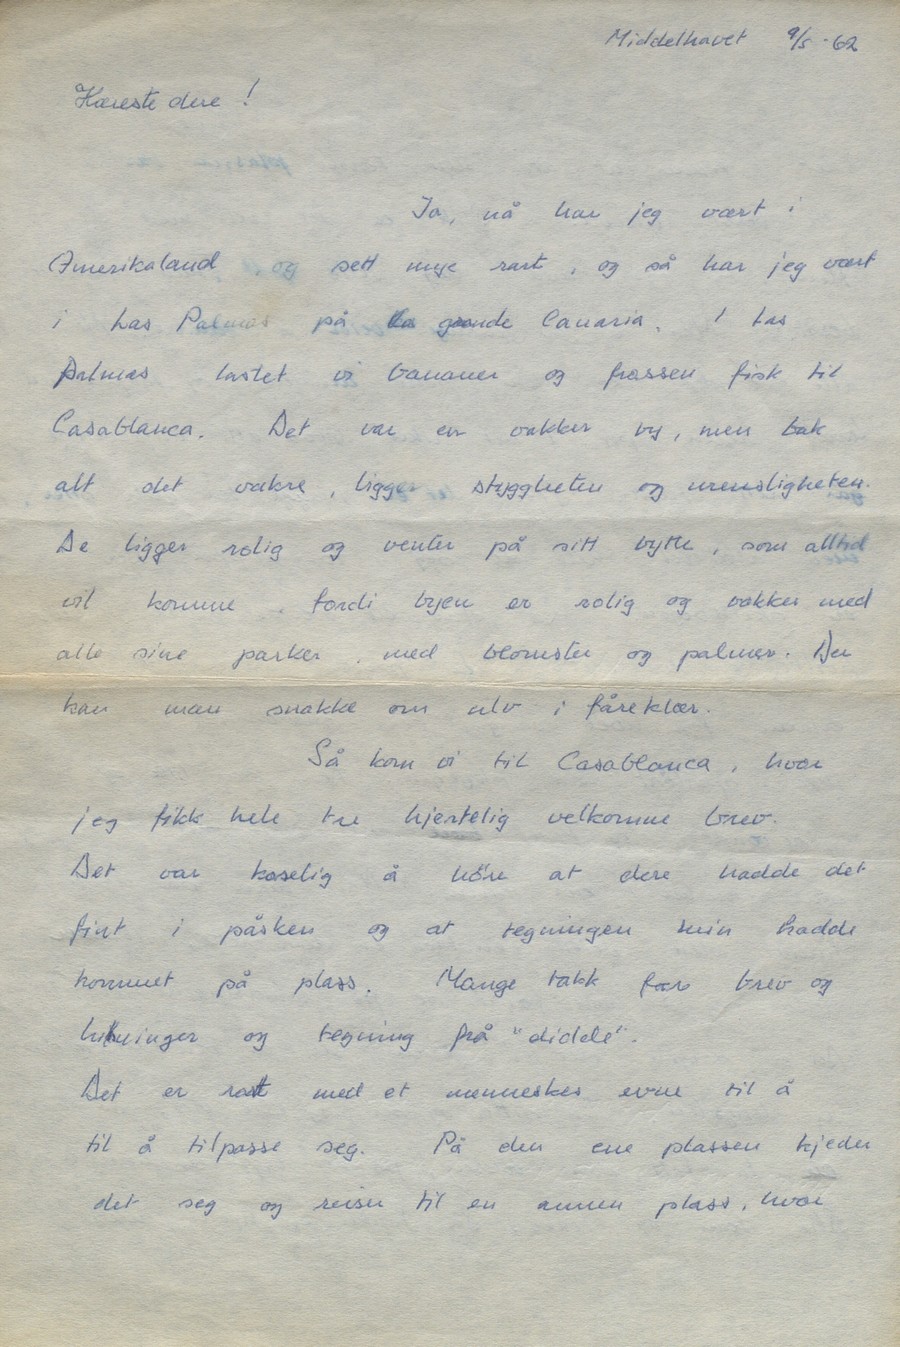 Middelhavet 9/5-62
Kæreste dere !
Ja, nå har jeg vært i
Amerikaland, og sett mye rart, og så har jeg vært
i Las Palmas på grande Canaria. I Las
Palmas lastet vi bananer og frossen fisk til
Casablanca. Det var en vakker by, men bak
alt det vakre, ligger styggheten og urensligheten.
De ligger rolig og venter på sitt bytte, som alltid
vil komme, fordi byen er rolig og vakker med
alle sine parker, med blomster og palmer. Der
kan man snakke om ulv i fåreklær.
Så kom vi til Casablanca, hvor
jeg fikk hele tre hjertelig velkomne brev.
Det var koselig å höre at dere hadde det
fint i påsken og at tegningen min hadde
kommet på plass. Mange takk for brev og
hilsninger og tegning frå "diddé".
Det er rart med et menneskes evne til å
til å tilpasse seg. På den ene plassen kjeder
det seg og reiser til en annen plass, hvor